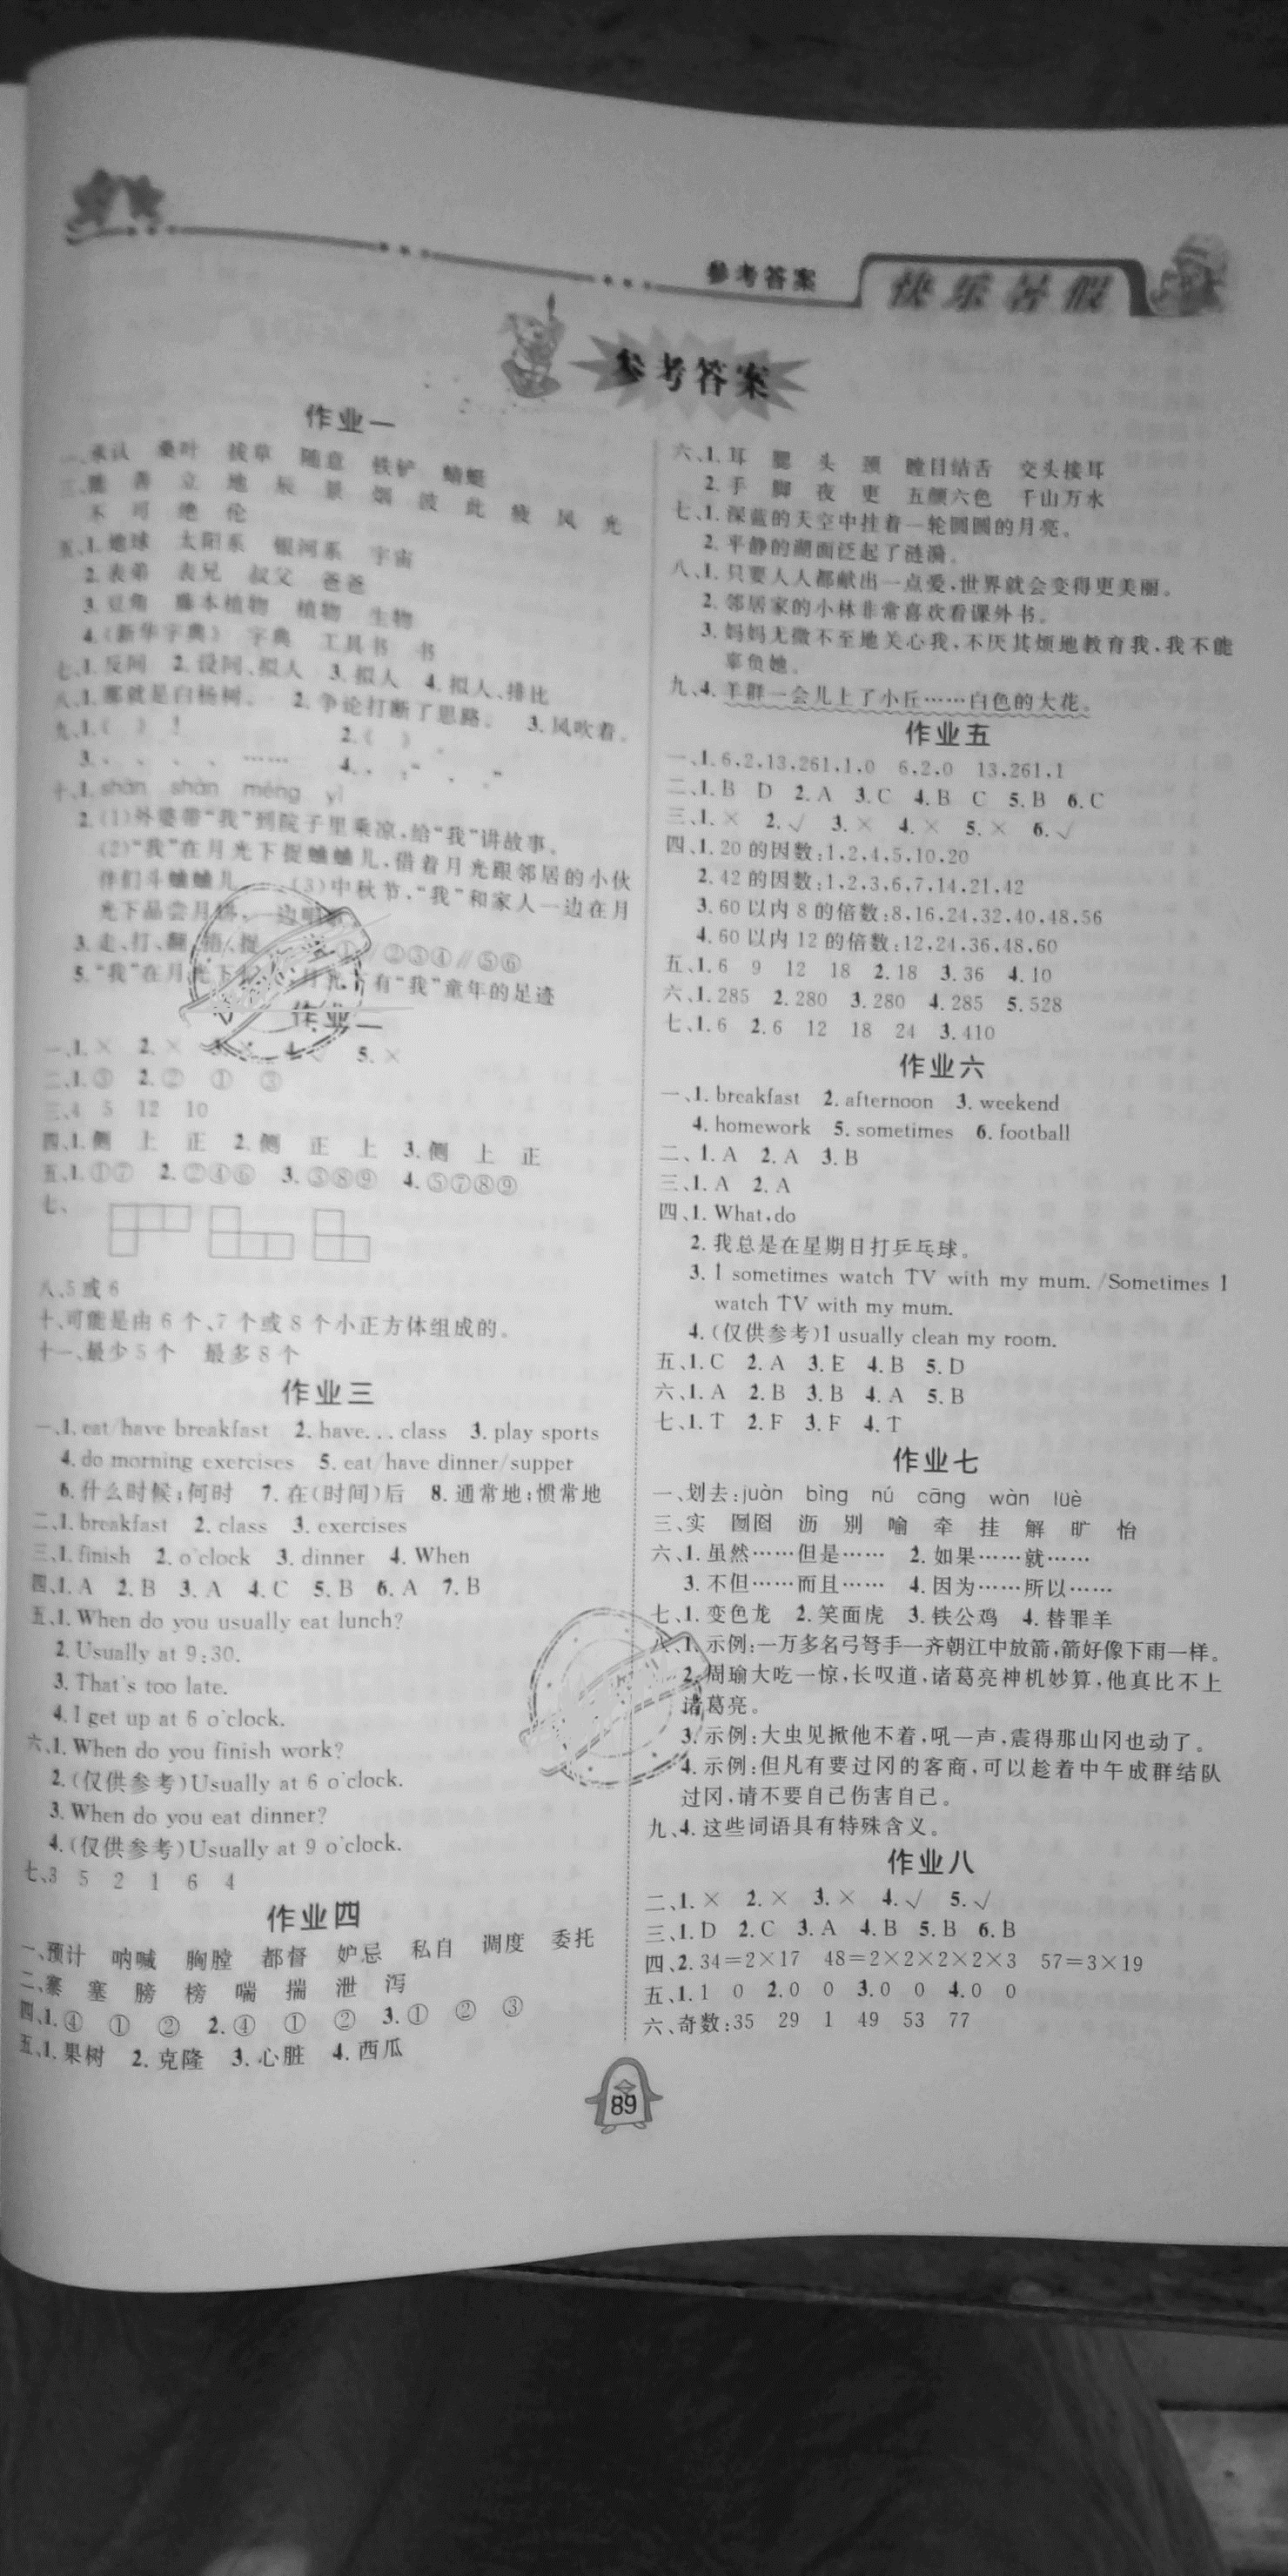 参考答案 快乐暑假
参考答案
作业一
一、承认 桑叶 拔草 随意 铁铲 蜻蜓
善 立 地 辰 景 烟 波 此 疲 风 光
不 可 绝 伦
五、1. 地球 太阳系 银河系 宇宙
2. 表弟 表兄 叔父 爸爸
3. 豆角 藤本植物 植物 生物
4.《新华字典》 字典 工具书 书
七、1. 反问 2. 设问、拟人 3. 拟人 4. 拟人、排比
八、1. 那就是白杨树。 2. 争论打断了思路。 3. 风吹着。
九、1. ( ) ! 2. ( ) 。
3. 、 、 、 、 …… 4. , :“ , 。”
十、1. shān shàn méng yì
2. (1)外婆带“我”到院子里乘凉,给“我”讲故事。
(2)“我”在月光下捉蛐蛐儿,借着月光跟邻居的小伙
伴们斗蛐蛐儿 (3)中秋节,“我”和家人一边在月
光下品尝月饼,一边
3. 走、打、翻、捎、捉 ①∥②③④∥⑤⑥
5. “我”在月光下 月光下有“我”童年的足迹
作业二
一、1. × 2. × 5. ×
二、1. ③ 2. ② ① ③
三、4 5 12 10
四、1. 侧 上 正 2. 侧 正 上 3. 侧 上 正
五、1. ①⑦ 2. ②④⑥ 3. ③⑧⑨ 4. ⑤⑦⑧⑨
七、
八、5 或 6
十、可能是由 6 个、7 个或 8 个小正方体组成的。
十一、最少 5 个 最多 8 个
作业三
一、1. eat/have breakfast 2. have...class 3. play sports
4. do morning exercises 5. eat/have dinner/supper
6. 什么时候;何时 7. 在(时间)后 8. 通常地;惯常地
二、1. breakfast 2. class 3. exercises
三、1. finish 2. o'clock 3. dinner 4. When
四、1. A 2. B 3. A 4. C 5. B 6. A 7. B
五、1. When do you usually eat lunch?
2. Usually at 9:30.
3. That's too late.
4. I get up at 6 o'clock.
六、1. When do you finish work?
2. (仅供参考)Usually at 6 o'clock.
3. When do you eat dinner?
4. (仅供参考)Usually at 9 o'clock.
七、3 5 2 1 6 4
作业四
一、预计 呐喊 胸膛 都督 妒忌 私自 调度 委托
二、寨 塞 膀 榜 喘 揣 泄 泻
四、1. ④ ① ② 2. ④ ① ② 3. ① ② ③
五、1. 果树 2. 克隆 3. 心脏 4. 西瓜
六、1. 耳 腮 头 颈 瞠目结舌 交头接耳
2. 手 脚 夜 更 五颜六色 千山万水
七、1. 深蓝的天空中挂着一轮圆圆的月亮。
2. 平静的湖面泛起了涟漪。
八、1. 只要人人都献出一点爱,世界就会变得更美丽。
2. 邻居家的小林非常喜欢看课外书。
3. 妈妈无微不至地关心我,不厌其烦地教育我,我不能
辜负她。
九、4. 羊群一会儿上了小丘……白色的大花。
作业五
一、1. 6,2,13,261,1,0 6,2,0 13,261,1
二、1. B D 2. A 3. C 4. B C 5. B 6. C
三、1. × 2. √ 3. × 4. × 5. × 6. √
四、1. 20 的因数:1,2,4,5,10,20
2. 42 的因数:1,2,3,6,7,14,21,42
3. 60 以内 8 的倍数:8,16,24,32,40,48,56
4. 60 以内 12 的倍数:12,24,36,48,60
五、1. 6 9 12 18 2. 18 3. 36 4. 10
六、1. 285 2. 280 3. 280 4. 285 5. 528
七、1. 6 2. 6 12 18 24 3. 410
作业六
一、1. breakfast 2. afternoon 3. weekend
4. homework 5. sometimes 6. football
二、1. A 2. A 3. B
三、1. A 2. A
四、1. What,do
2. 我总是在星期日打乒乓球。
3. I sometimes watch TV with my mum. /Sometimes I
watch TV with my mum.
4. (仅供参考)I usually clean my room.
五、1. C 2. A 3. E 4. B 5. D
六、1. A 2. B 3. B 4. A 5. B
七、1. T 2. F 3. F 4. T
作业七
一、划去:juàn bìng nú cāng wàn lüè
三、实 囫囵 沥 别 喻 牵 挂 解 旷 怡
六、1. 虽然……但是…… 2. 如果……就……
3. 不但……而且…… 4. 因为……所以……
七、1. 变色龙 2. 笑面虎 3. 铁公鸡 4. 替罪羊
八、1. 示例:一万多名弓弩手一齐朝江中放箭,箭好像下雨一样。
2. 周瑜大吃一惊,长叹道,诸葛亮神机妙算,他真比不上
诸葛亮。
3. 示例:大虫见掀他不着,吼一声,震得那山冈也动了。
4. 示例:但凡有要过冈的客商,可以趁着中午成群结队
过冈,请不要自己伤害自己。
九、4. 这些词语具有特殊含义。
作业八
二、1. × 2. × 3. × 4. √ 5. √
三、1. D 2. C 3. A 4. B 5. B 6. B
四、2. 34=2×17 48=2×2×2×2×3 57=3×19
五、1. 1 0 2. 0 0 3. 0 0 4. 0 0
六、奇数:35 29 1 49 53 77
89